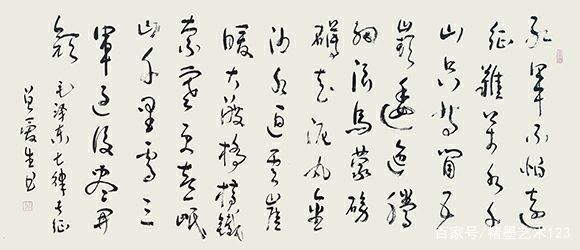 红军不怕远
征難万水千
山只等闲五
嶺逶迤腾
细浪乌蒙磅
礴走泥丸金
沙水拍云崖
暖大渡橋横鐵
索寒更喜岷
山千里雪三
軍过后尽開
颜
毛泽东七律长征
爱生书
百家号/楮墨艺术123